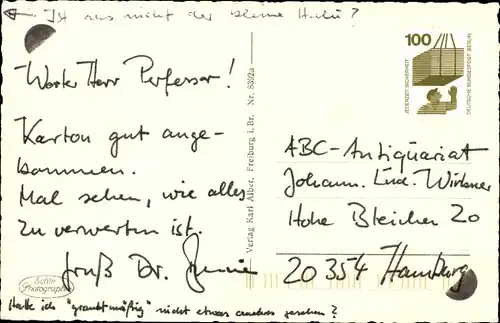 Ist das nicht der kleine
Werter Herr Perfessor!
Karton gut ange-
kommen.
Mal sehen, wie alles
zu verwerten ist.
Gruß Dr.
Echte
Photographie
Hatte ich "grautmäßig" nicht etwas anderes gesehen?
Verlag Karl Alber, Freiburg i. Br. Nr. 8392a
100
JEDERZEIT SICHERHEIT
DEUTSCHE BUNDESPOST BERLIN
ABC-Antiquariat
Johann.
Hohe Bleichen 20
20 354 Hamburg